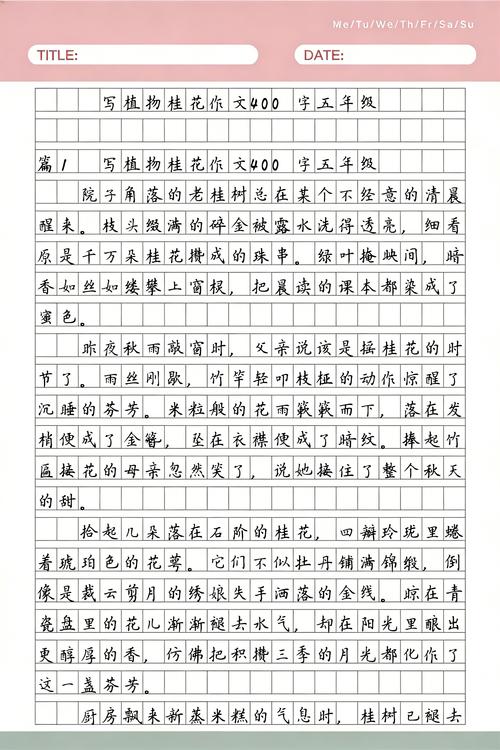 Me/Tu/We/Th/Fr/Sa/Su
TITLE:
DATE:
写植物桂花作文400 字五年级
篇1 写植物桂花作文400 字五年级
院子角落的老桂树总在某个不经意的清晨
醒来。枝头缀满的碎金被露水洗得透亮，细看
原是千万朵桂花攒成的珠串。绿叶掩映间，暗
香如丝如缕攀上窗棂，把晨读的课本都染成了
蜜色。
昨夜秋雨敲窗时，父亲说该是摇桂花的时
节了。雨丝刚歇，竹竿轻叩枝桠的动作惊醒了
沉睡的芬芳。米粒般的花雨簌簌而下，落在发
梢便成了金簪，坠在衣襟便成了暗纹。捧起竹
匾接花的母亲忽然笑了，说她接住了整个秋天
的甜。
拾起几朵落在石阶的桂花，四瓣玲珑里蜷
着琥珀色的花萼。它们不似牡丹铺满锦缎，倒
像是裁云剪月的绣娘失手洒落的金线。晾在青
瓷盘里的花儿渐渐褪去水气，却在阳光里酿出
更醇厚的香，仿佛把积攒三季的月光都化作了
这一盏芬芳。
厨房飘来新蒸米糕的气息时，桂树已褪去